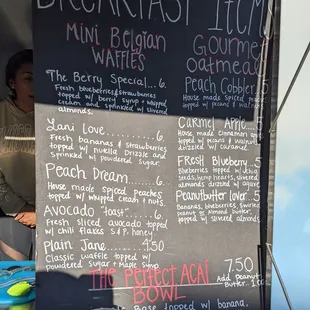 BREAKFAST ITEM
Mini Belgian
WAFFLES
The Berry Special... 6.
Fresh blueberries & strawberries
topped w/ berry syrup & whipped
cream and sprinkled w/ slivered
almonds.
Lani Love........... 6.
Fresh bananas & strawberries
topped w/ nutella drizzle and
sprinkled w/ powdered sugar.
Peach Dream...... 6.
House made spiced peaches
topped w/ whipped cream & nuts.
Avocado "toast"..... 6.
Fresh sliced avocado topped
w/ chili flakes S&P. honey
Plain Jane.......... 4.50
Classic waffle topped w/
powdered sugar & maple syrup
Gourmet
Oatmeal
Peach Cobbler 5
House made spiced
topped w/ pecans &
Carmel Apple... 5
House made cinnamon
topped w/ pecans & walnuts
drizzled w/ caramel.
Fresh Blueberry. 5
Blueberries topped w/ chia
seeds, hemp hearts, slivered
almonds drizzled w/ agave.
Peanutbutter lover. 5
Bananas, blueberries, swirled
peanut or Almond butter,
topped w/ slivered almonds
THE PERFECT ACAI
BOWL
7.50
Add Peanut
Butter 1.00
Base topped w/ banana,